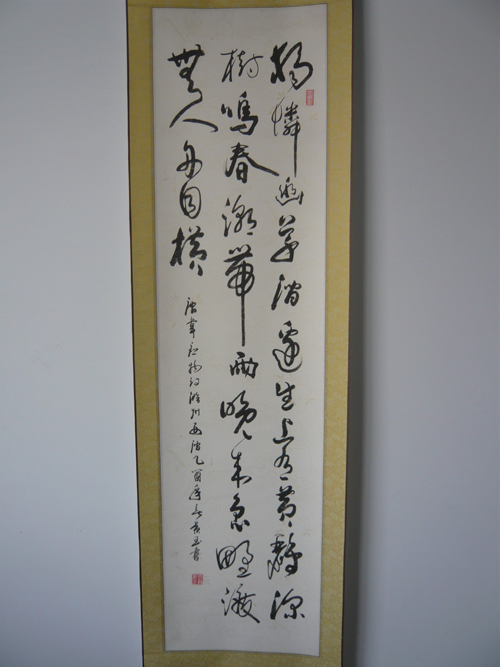 獨憐幽草澗邊生上有黃鸝深
樹鳴春潮帶雨晚來急野渡
無人舟自橫
唐韋應物詩滁州西澗乙酉年書